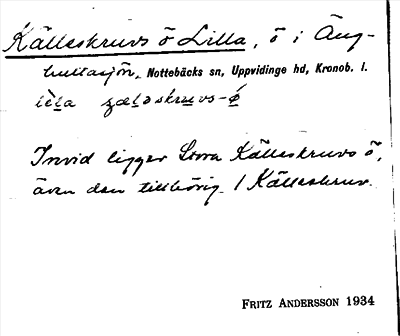 Källeskruvs ö Lilla, ö i Äng-
hultasjön, Nottebäcks sn, Uppvidinge hd, Kronob. l.
Invid ligger Stora Källeskruvs ö,
även den tillhörig / Källeskruv.
FRITZ ANDERSSON 1934